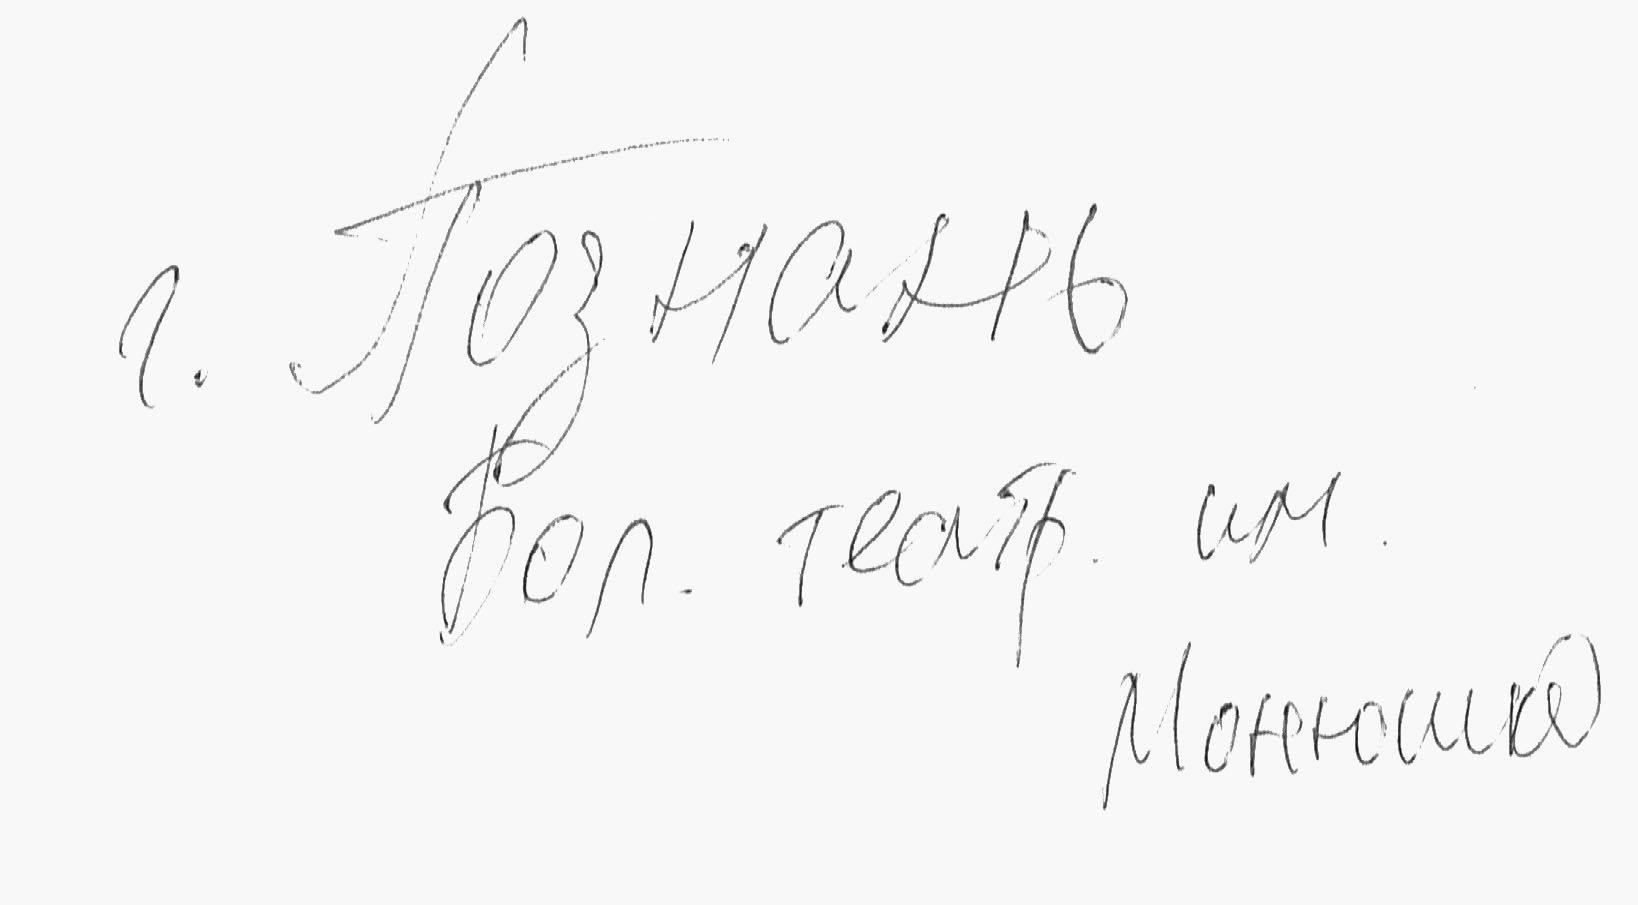 г. Познань
Бол. театр. им.
Монюшко